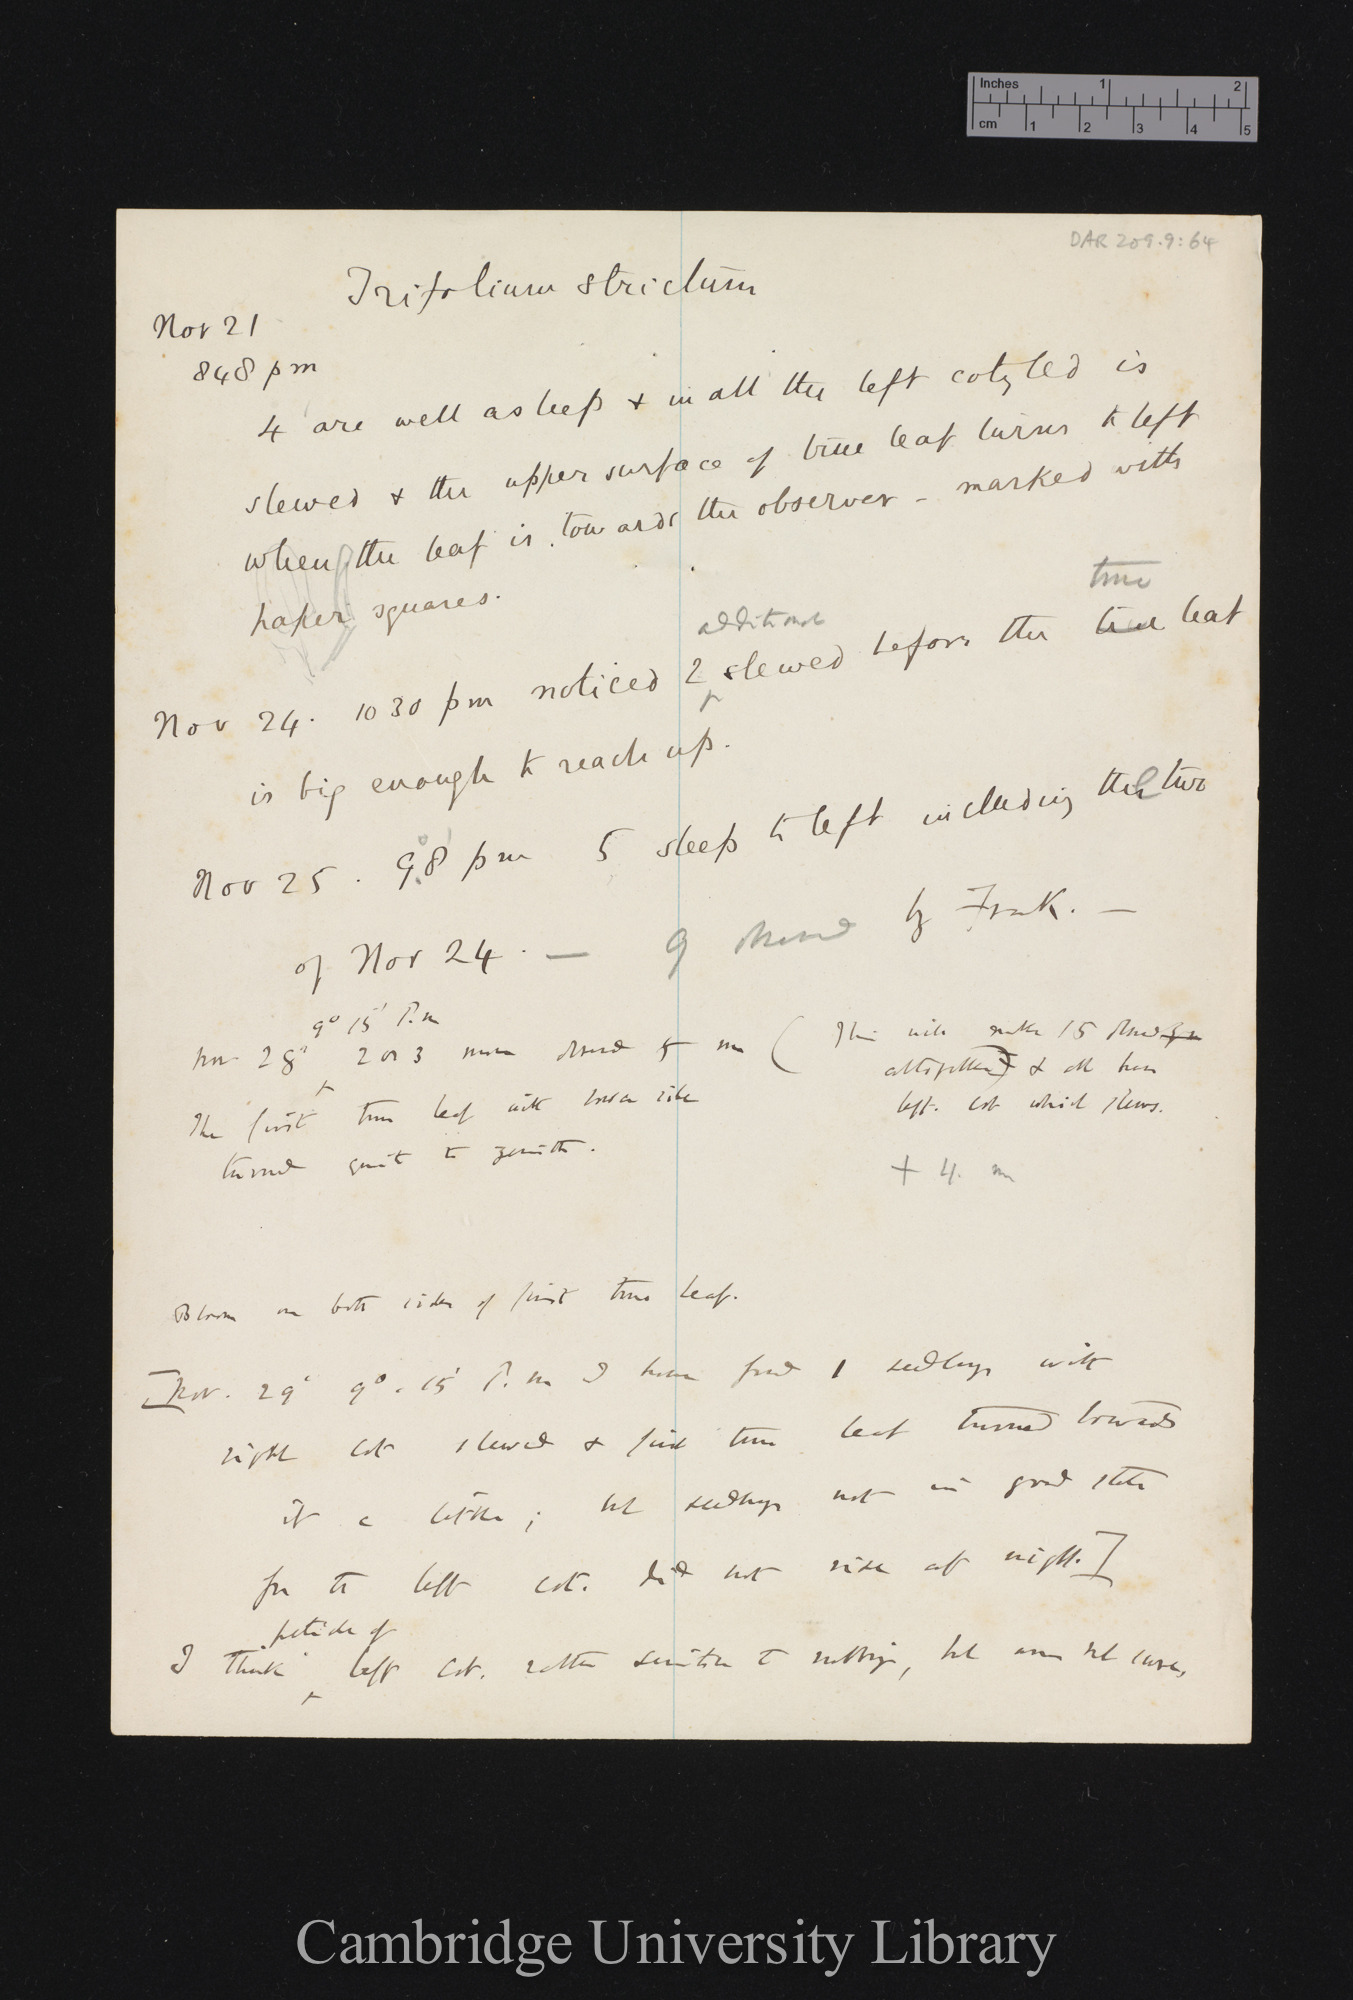 Inches 1 2
cm 1 2 3 4 5
DAR 209.9:64
Trifolium strictum
Nov 21
848 pm
4 are well asleep & in all the left cotyled is
slewed & the upper surface of true leaf turns to left
when the leaf is towards the observer - marked with
paper squares.
true
additional
Nov 24. 10 30 pm noticed 2 slewed before the true leaf
is big enough to reach up.
Nov 25. 9.8 pm 5 sleep to left including the two
of Nov 24. — 9 observed by Frank. —
9° 15' P.m
Nov 28' 2 or 3 more observed by me (This will make 15 observed
altogether) & all have
The first true leaf with lower side
left. cot which slews.
turned quite to zenith.
+ 4. m
Bloom on both sides of first true leaf.
[Nov. 29' 9°. 15' P. m I have found 1 seedling with
right cot slewed & first true leaf turned towards
it a little; but seedling not in good state
for the left cot. did not rise at night.]
petiole of
I think left cot. rather sensitive to rubbing, but am not sure,
Cambridge University Library